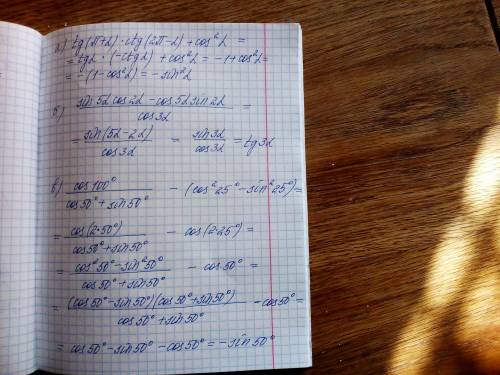 а) tg(π+α)·ctg(2π-α)+cos²α =
= tgα·(-ctgα)+cos²α = -1+cos²α=
= -(1-cos²α) = -sin²α
б) (sin5α cos2α - cos5α sin2α)/cos3α =
= sin(5α-2α)/cos3α = sin3α/cos3α = tg3α
в) cos100°/(cos50°+sin50°) - (cos²25°-sin²25°)=
= cos(2·50°)/(cos50°+sin50°) - cos(2·25°) =
= (cos²50°-sin²50°)/(cos50°+sin50°) - cos50° =
= (cos50°-sin50°)(cos50°+sin50°)/(cos50°+sin50°) - cos50° =
= cos50°-sin50° - cos50° = -sin50°